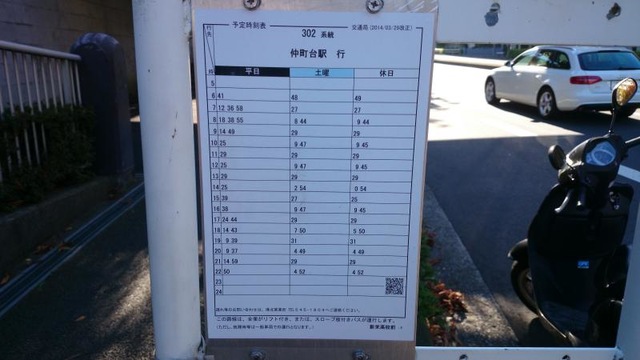 予定時刻表 302 系統 交通局 (2014/03/29改正)
行先 仲町台駅 行
時 平日 土曜 休日
5
6 41 48 49
7 12 36 58 27 27
8 18 38 55 8 44 9 44
9 14 49 29 29
10 25 9 47 9 45
11 29 29 29
12 25 9 47 9 45
13 29 29 29
14 25 2 54 0 54
15 39 27 25
16 38 9 47 9 45
17 24 44 29 29
18 14 43 7 50 5 50
19 9 39 31 31
20 9 37 4 49 4 49
21 14 59 29 29
22 50 4 52 4 52
23
24
この路線は、全車がリフト付き、または、スロープ板付きバスが運行します。